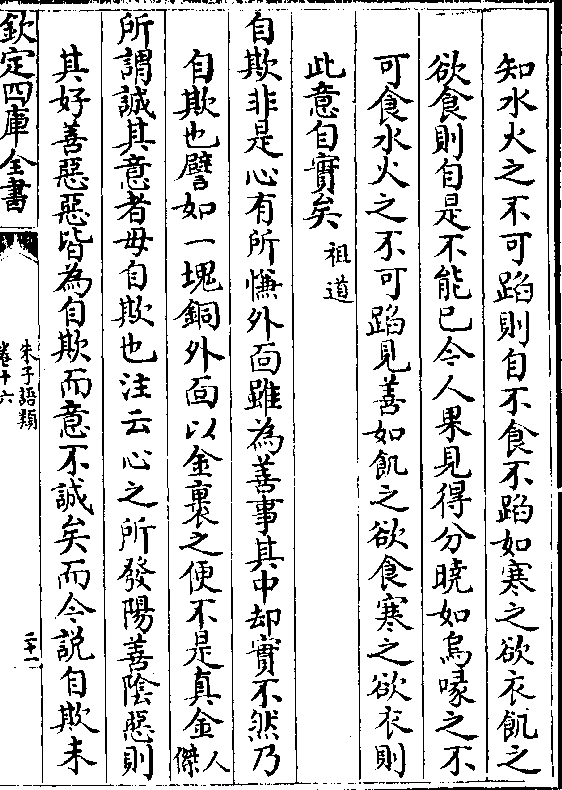 知水火之不可蹈則自不食不蹈如寒之欲衣飢之
欲食則自是不能已今人果見得分曉如烏喙之不
可食水火之不可蹈見善如飢之欲食寒之欲衣則
此意自實矣 祖道
自欺非是心有所慊外面雖為善事其中却實不然乃
自欺也譬如一塊銅外面以金裹之便不是真金 人傑
所謂誠其意者毋自欺也注云心之所發陽善陰惡則
其好善惡惡皆為自欺而意不誠矣而今説自欺未
欽定四庫全書
朱子語類
卷十六
二十一